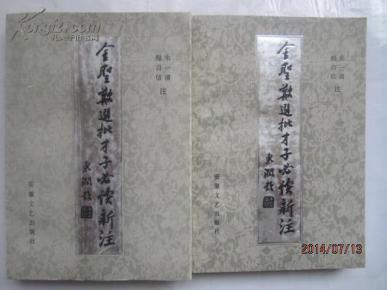 朱一清
程自信 注
金聖歎選批才子必讀新注
東潤題
安徽文艺出版社
朱一清
程自信 注
金聖歎選批才子必讀新注
東潤題
安徽文艺出版社
2014/07/13